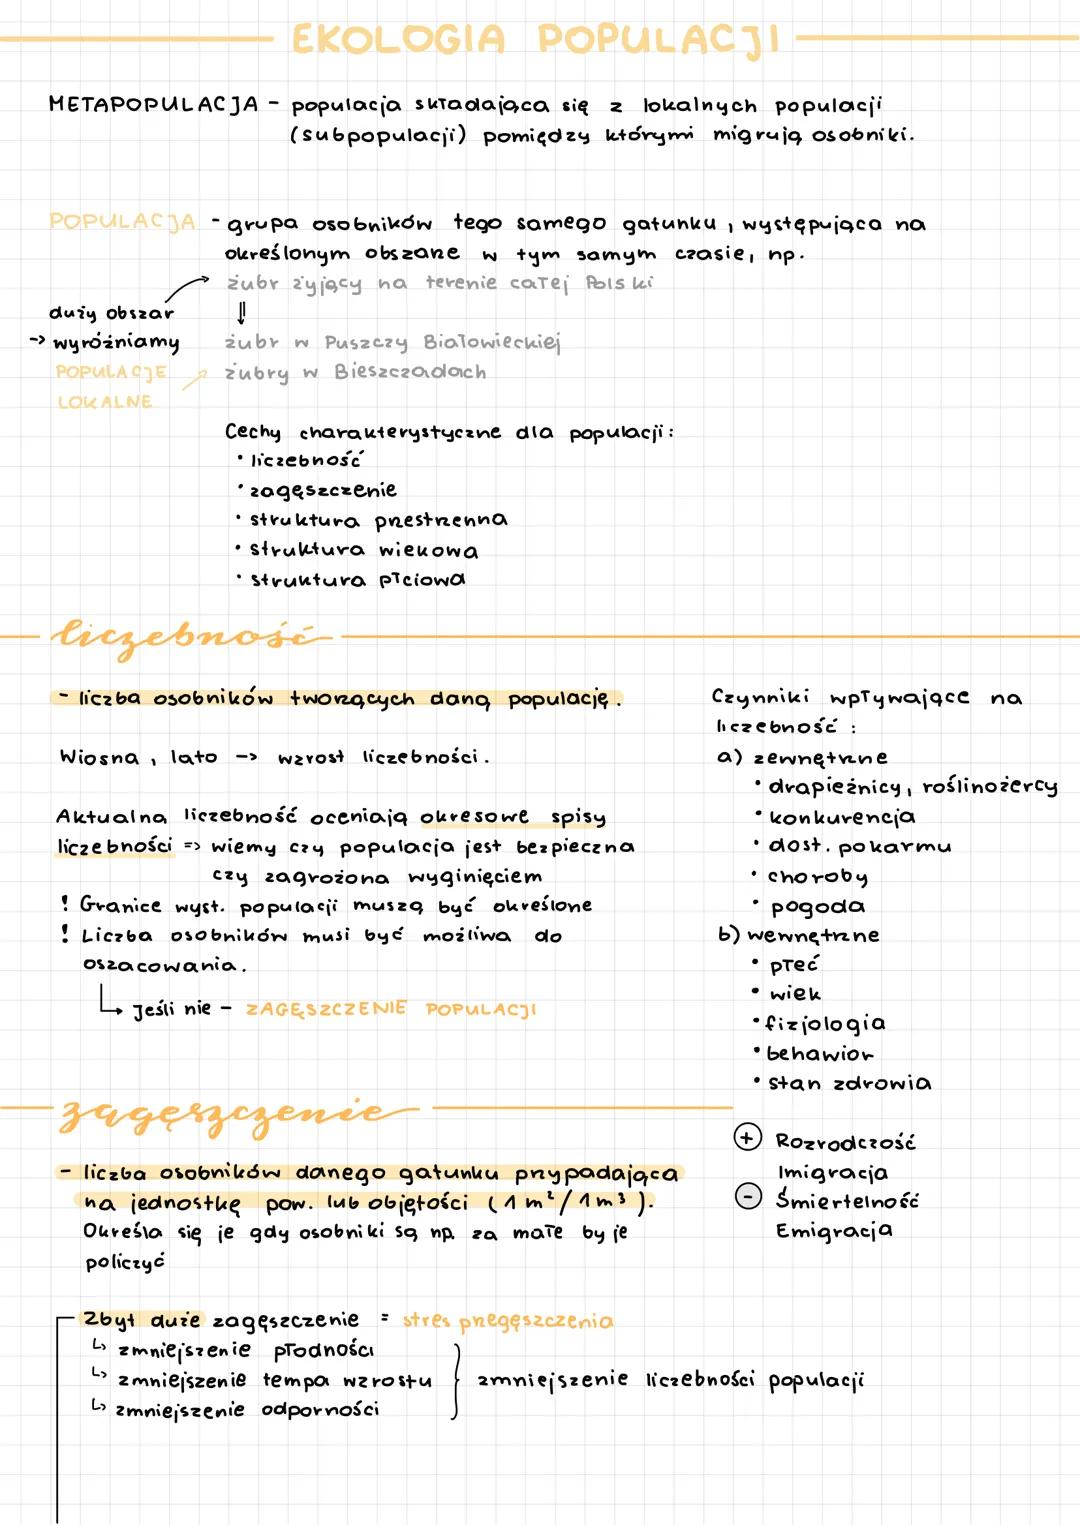 EKOLOGIA POPULACJI
METAPOPULACJA - populacja składająca się z lokalnych populacji
(subpopulacji) pomiędzy którymi migrują osobniki.
POPULACJA - grupa osobników tego samego gatunku, występująca na
określonym obszarze w tym samym czasie, np.
żubr żyjący na terenie całej Polski
duży obszar ⇓
-> wyróżniamy
POPULACJE
LOKALNE
żubr w Puszczy Białowieckiej
żubry w Bieszczadach
Cechy charakterystyczne dla populacji:
• liczebność
• zagęszczenie
• struktura przestrzenna
• struktura wiekowa
• struktura płciowa
liczebność
- liczba osobników tworzących daną populację.
Wiosna, lato -> wzrost liczebności.
Aktualną liczebność oceniają okresowe spisy
liczebności => wiemy czy populacja jest bezpieczna
czy zagrożona wyginięciem
! Granice wyst. populacji muszą być określone
! Liczba osobników musi być możliwa do
oszacowania.
↳ Jeśli nie - ZAGĘSZCZENIE POPULACJI
Czynniki wpływające na
liczebność:
a) zewnętrzne
• drapieżnicy, roślinożercy
• konkurencja
• dost. pokarmu
• choroby
• pogoda
b) wewnętrzne
• płeć
• wiek
• fizjologia
• behawior
• stan zdrowia
+ Rozrodczość
Imigracja
- Śmiertelność
Emigracja
zagęszczenie
- liczba osobników danego gatunku przypadająca
na jednostkę pow. lub objętości (1 m²/1m³).
Określa się je gdy osobniki są np. za małe by je
policzyć
Zbyt duże zagęszczenie = stres przegęszczenia
↳ zmniejszenie płodności
↳ zmniejszenie tempa wzrostu } zmniejszenie liczebności populacji
↳ zmniejszenie odporności